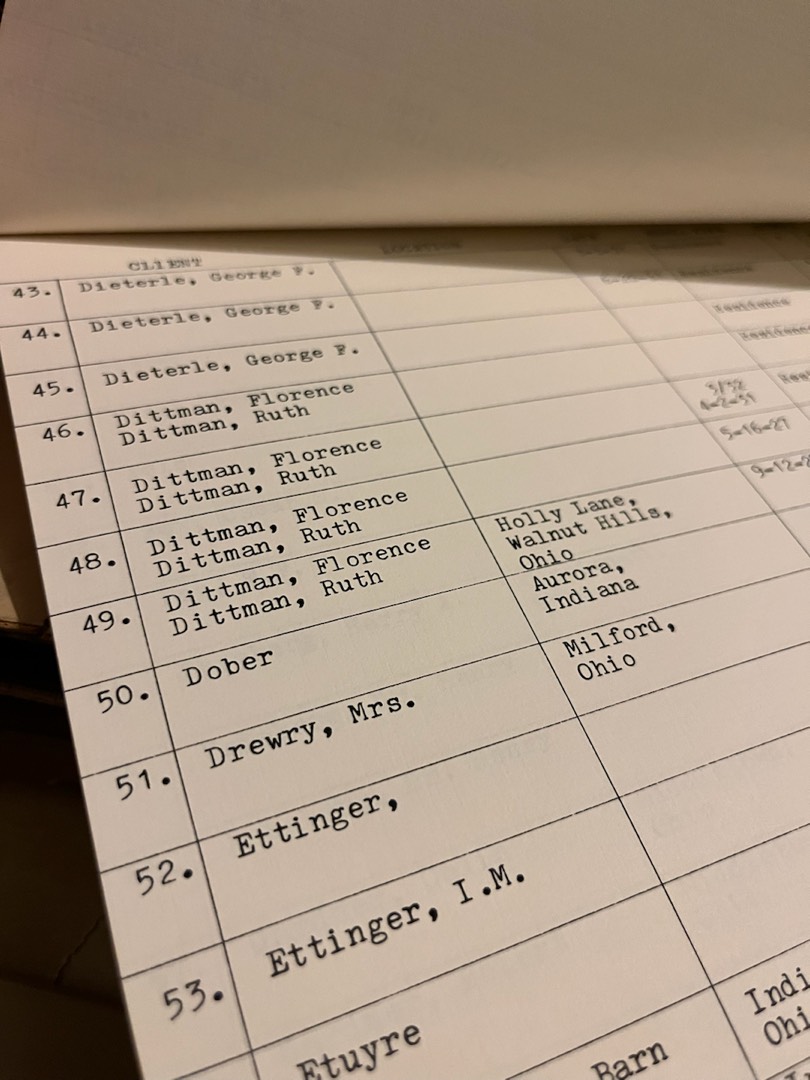 CLIENT
LOCATION
43. Dieterle, George F.
44. Dieterle, George F.
Residence
45. Dieterle, George F.
Residence
46. Dittman, Florence
Dittman, Ruth
47. Dittman, Florence
Dittman, Ruth
5/32
4-2-31
48. Dittman, Florence
Dittman, Ruth
5-16-27
49. Dittman, Florence
Dittman, Ruth
Holly Lane,
Walnut Hills,
Ohio
9-12-2
50. Dober
Aurora,
Indiana
51. Drewry, Mrs.
Milford,
Ohio
52. Ettinger,
53. Ettinger, I.M.
Etuyre
Barn
Indi
Ohi